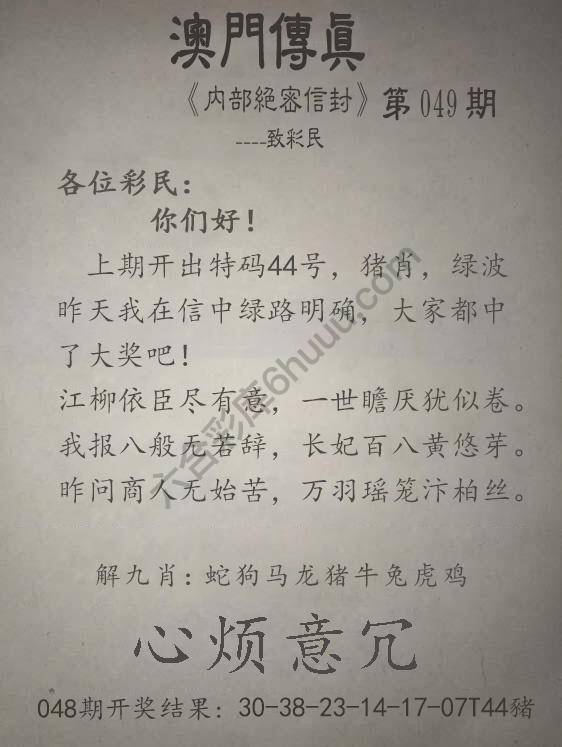 澳門傳眞
《内部絕密信封》第049期
----致彩民
各位彩民：
你们好！
上期开出特码44号，猪肖，绿波
昨天我在信中绿路明确，大家都中
了大奖吧！
江柳依臣尽有意，一世瞻厌犹似卷。
我报八般无若辞，长妃百八黄悠芽。
昨问商人无始苦，万羽瑶笼汴柏丝。
解九肖：蛇狗马龙猪牛兔虎鸡
心烦意冗
048期开奖结果：30-38-23-14-17-07T44豬
六合彩库6huuu.com